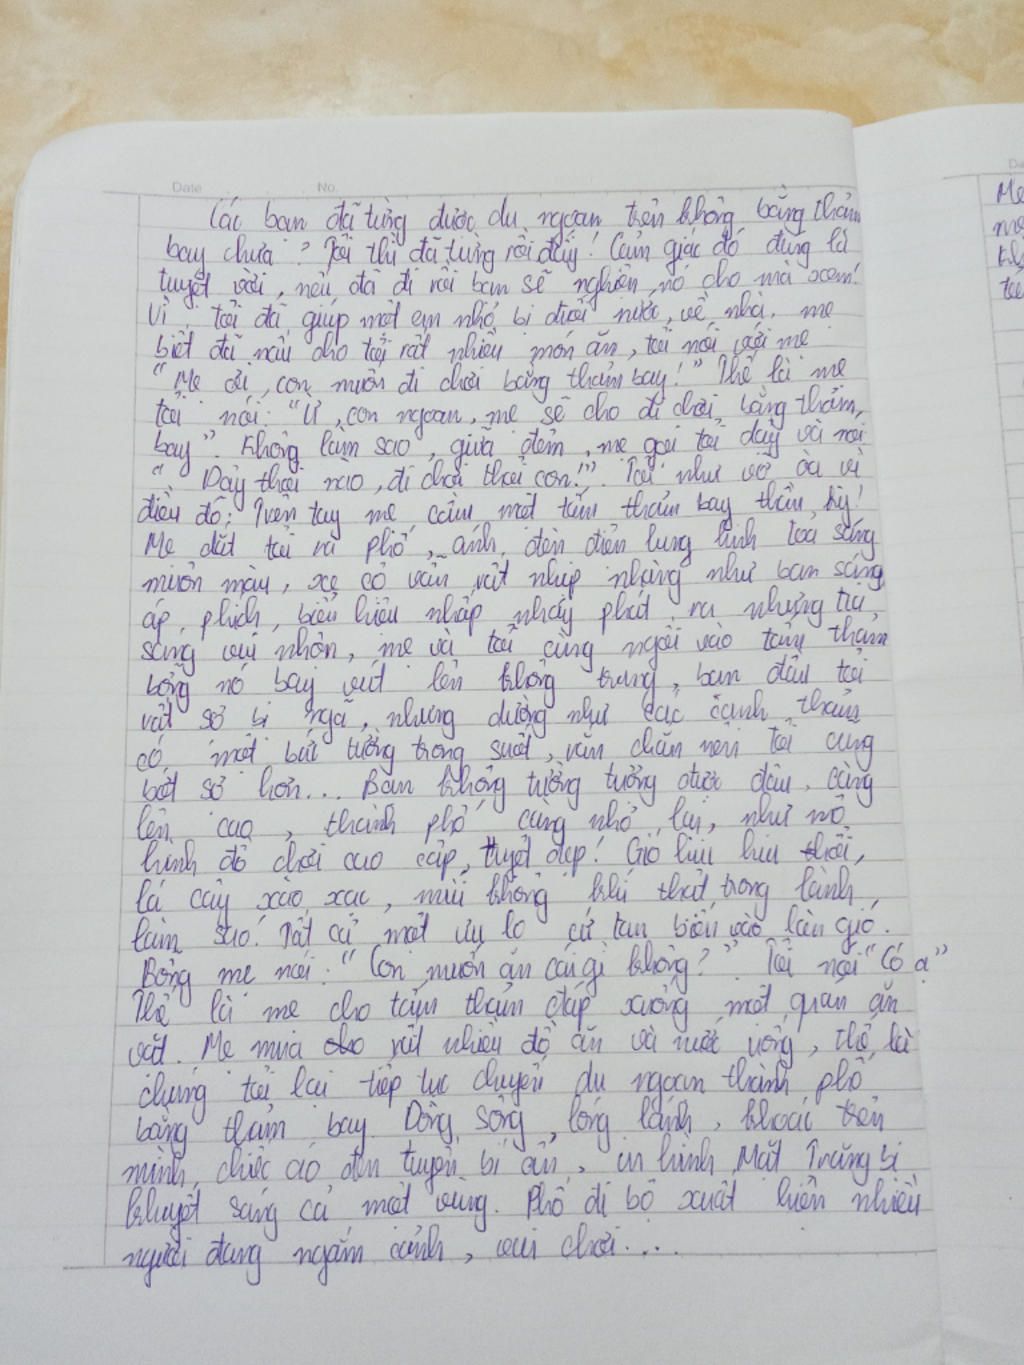 Date No.
Các bạn đã từng được du ngoạn trên không bằng thảm
bay chưa? Tôi thì đã từng rồi đấy! Cảm giác đó đúng là
tuyệt vời, nếu đã đi rồi bạn sẽ nghiện nó cho mà xem!
Vì tôi đã giúp một em nhỏ bị đuối nước, về nhà, mẹ
biết đã nấu cho tôi rất nhiều món ăn, tôi nói với mẹ
"Mẹ ơi, con muốn đi chơi bằng thảm bay!" Thế là mẹ
tôi nói: "Ừ, con ngoan, mẹ sẽ cho đi chơi bằng thảm
bay". Không làm sao, giữa đêm, mẹ gọi tôi dậy và nói
"Dậy thôi nào, đi chơi thôi con!". Tôi như vỡ òa vì
điều đó; Trên tay mẹ cầm một tấm thảm bay thần kỳ!
Mẹ dắt tôi ra phố, ánh đèn điện lung linh toả sáng
muôn màu, xe cộ vẫn rất nhịp nhàng như ban sáng
áp phích, biển hiệu nhấp nháy phát ra những tia
sáng vui nhộn, mẹ và tôi cùng ngồi vào tấm thảm
bỗng nó bay vút lên không trung, ban đầu tôi
rất sợ bị ngã, nhưng dường như các cạnh thảm
có một bức tường trong suốt, vắn chắn nên tôi cũng
bớt sợ hơn... Bạn không tưởng tưởng được đâu, càng
lên cao, thành phố càng nhỏ lại, như mô
hình đồ chơi cao cấp, tuyệt đẹp! Gió hiu hiu thổi,
lá cây xào xạc, mùi không khí thật trong lành
làm sao! Tất cả một ưu lo cứ tan biến vào làn gió.
Bỗng mẹ nói: "Con muốn ăn cái gì không?" Tôi nói "Có ạ"
Thế là mẹ cho tấm thảm đáp xuống một quán ăn
vặt. Mẹ mua rất nhiều đồ ăn và nước uống, thế là
chúng tôi lại tiếp tục chuyến du ngoạn thành phố
bằng thảm bay. Dòng sông lóng lánh, khoác trên
mình chiếc áo đen tuyền bí ẩn, in hình Mặt Trăng bị
khuyết sáng cả một vùng. Phố đi bộ xuất hiện nhiều
người đang ngắm cảnh, vui chơi....
Mẹ